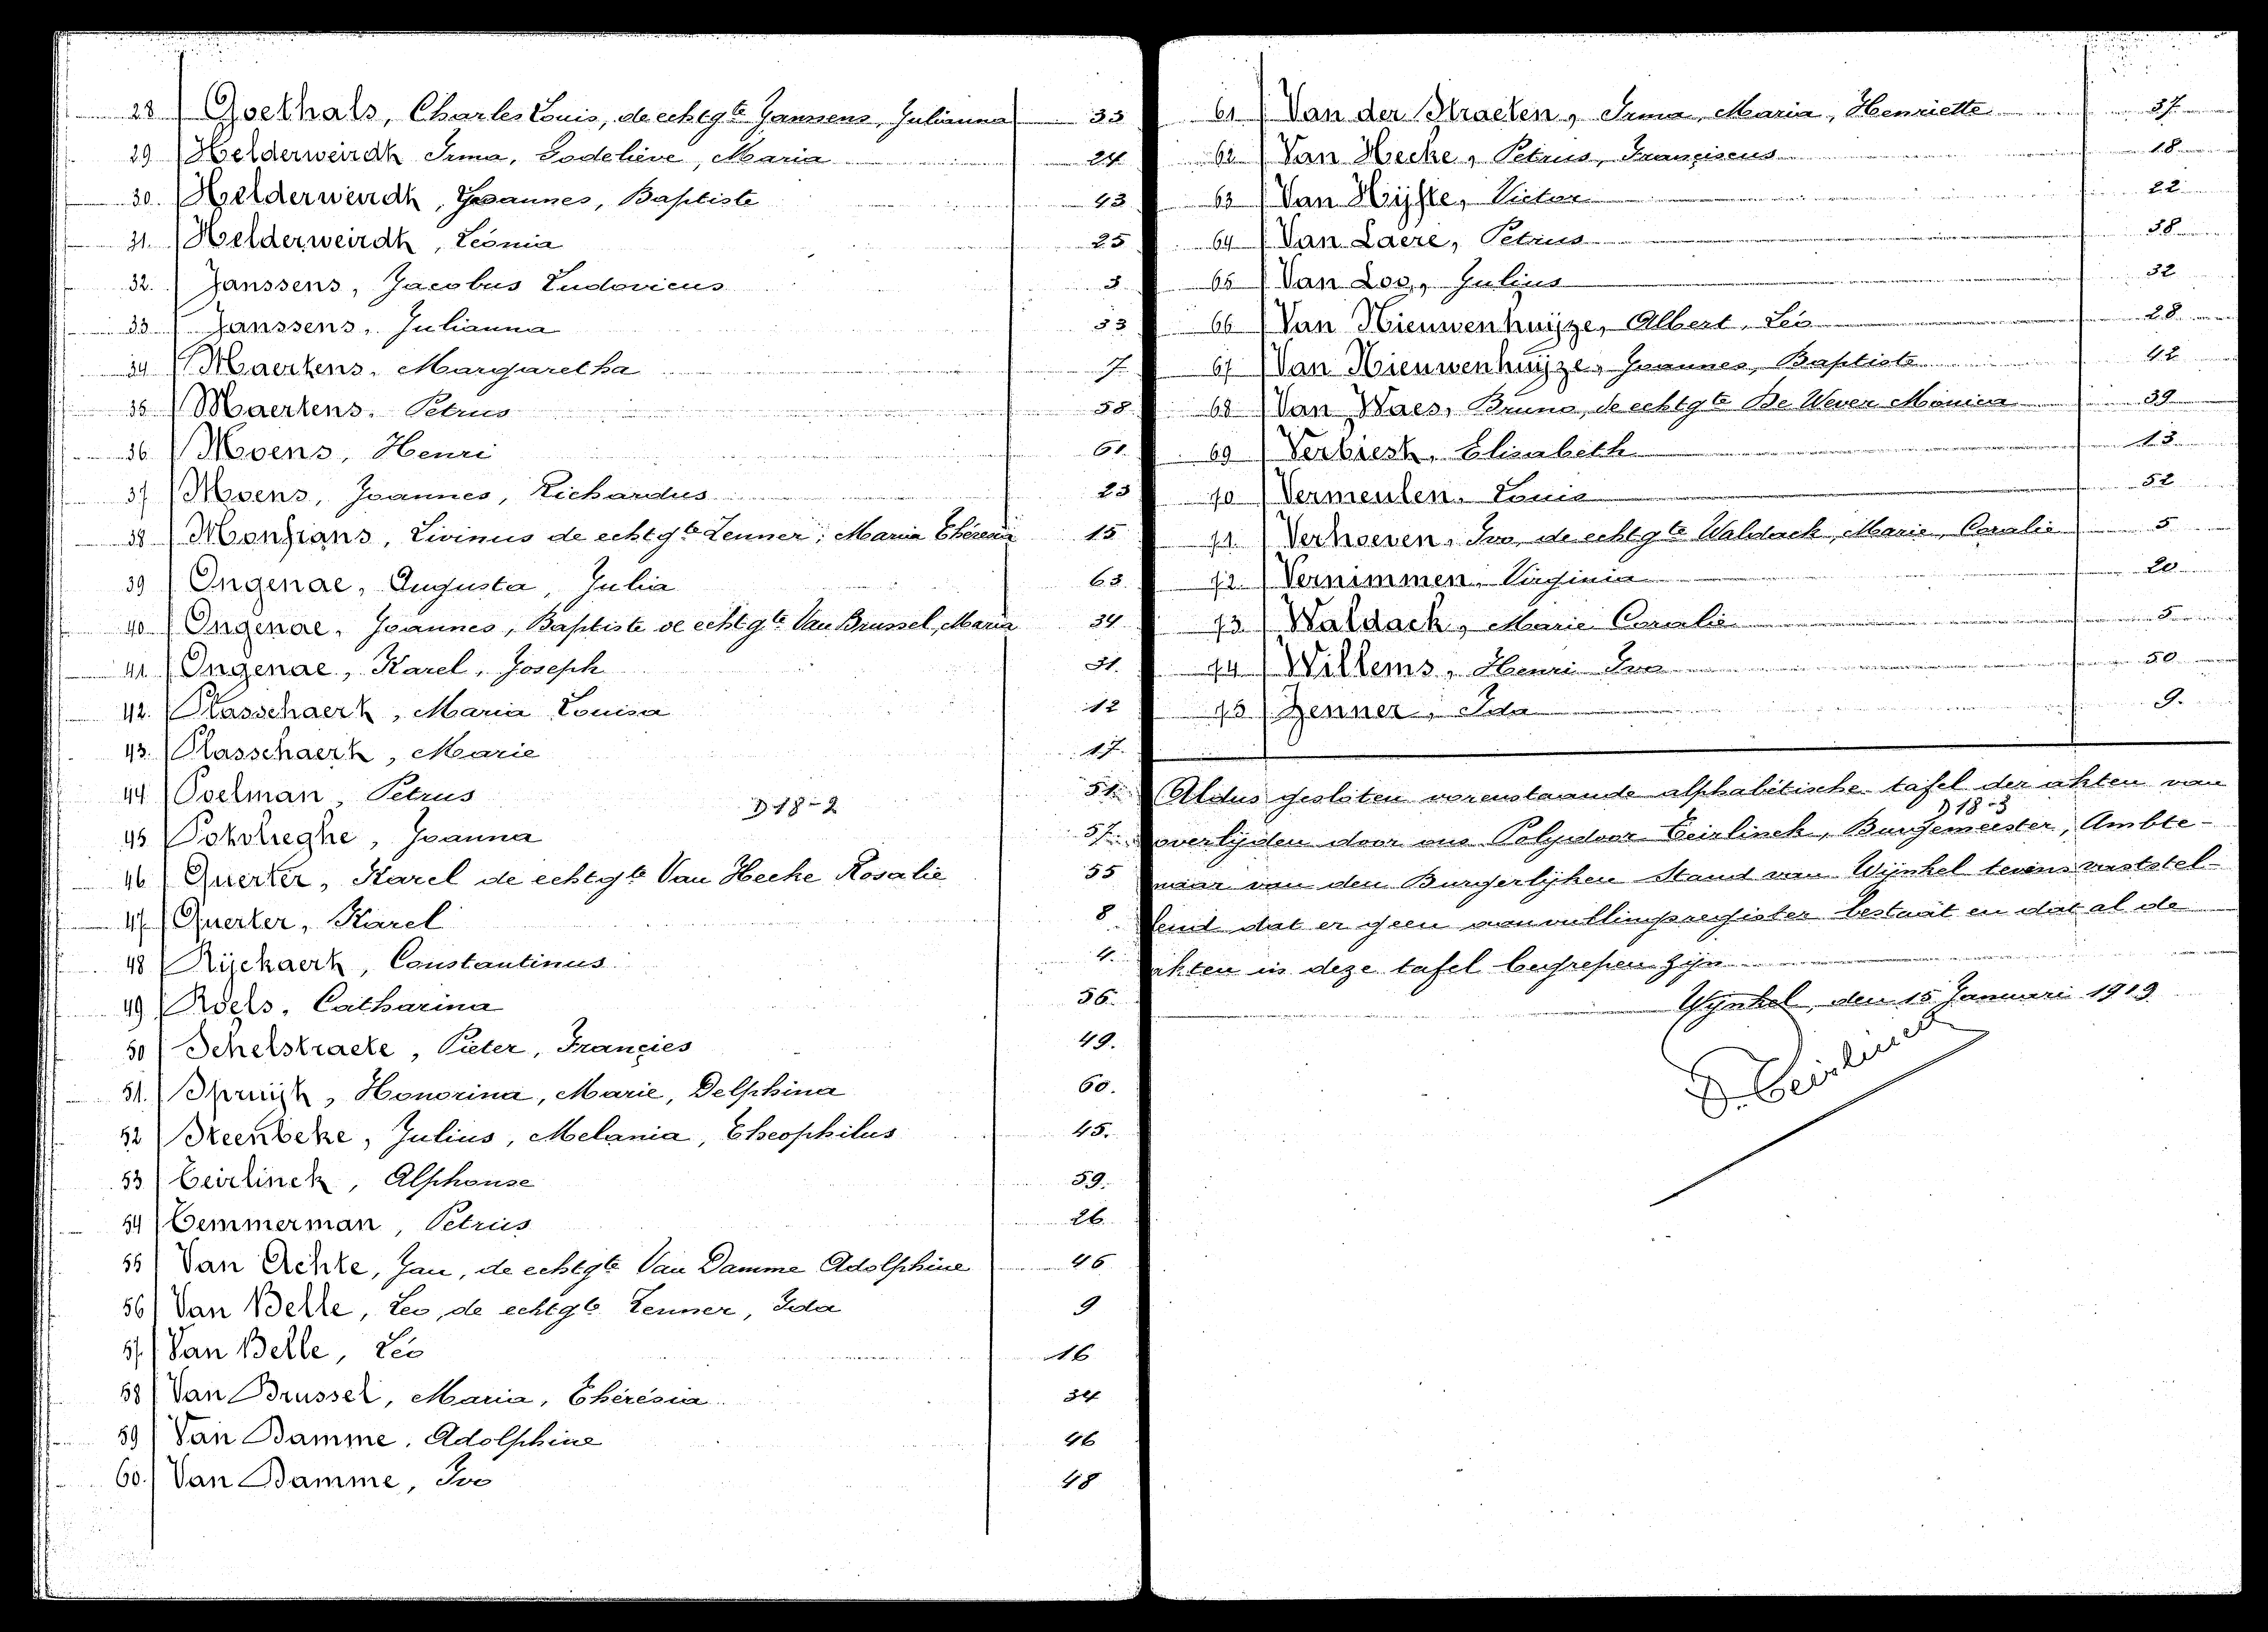 28 Goethals, Charles Louis, de echtgte Janssens, Julianna 33
29 Helderweirdt Irma, Godelieve, Maria 24
30. Helderweirdt, Joannes, Baptiste 43
31. Helderweirdt, Leonia 25
32. Janssens, Jacobus Ludovicus 3
33 Janssens, Julianna 33
34 Maertens, Margaretha 7
35 Maertens, Petrus 38
36 Moens, Henri 61.
37 Moens, Joannes, Richardus 23
38 Livinus de echtgte Zenner, Maria Theresia 15
39 Ongenae, Augusta, Julia 63
40 Ongenae, Joannes, Baptiste de echtgte Van Brussel, Maria 34
41 Ongenae, Karel, Joseph 31.
42. Plasschaert, Maria Louisa 12
43. Plasschaert, Marie 17.
44 Poelman, Petrus 51.
D 18-2
45 Potvlieghe, Joanna 57.
46 Querter, Karel de echtgte Van Hecke Rosalie 55
47 Querter, Karel 8
48 Rijckaert, Constantinus 4.
49 Roels, Catharina 56.
50 Schelstraete, Pieter, Francies 49.
51. Spruijt, Honorina, Marie, Delphina 60.
52 Steenbeke, Julius, Melania, Theophilus 45.
53 Teirlinck, Alphonse 59.
54 Temmerman, Petrus 26
55 Van Achte, Jan, de echtgte Van Damme Adolphine 46
56 Van Belle, Leo, de echtgte Zenner, Ida 9
57. Van Belle, Leo 16
58 Van Brussel, Maria, Theresia 34
59 Van Damme, Adolphine 46
60. Van Damme, Ivo 48
61 Van der Straeten, Irma, Maria, Henriette 37
62 Van Hecke, Petrus, Franciscus 18
63 Van Hijfte, Victor 22
64 Van Laere, Petrus 38
65 Van Loo, Julius 32
66 Van Nieuwenhuijze, Albert, Leo 28
67 Van Nieuwenhuijze, Joannes, Baptiste 42
68 Van Waes, Bruno, de echtgte De Wever Monica 39
69 Verbiest, Elisabeth 13
70 Vermeulen, Louis 52
71. Verhoeven, Ivo, de echtgte Waldack, Marie, Coralie 5
72. Vernimmen, Virginia 20
73 Waldack, Marie Coralie 5
74 Willems, Henri Ivo 50
75 Zenner, Ida 9.
Aldus gesloten vorenstaande alphabetische tafel der akten van
D 18-3
overlijden door ons Polydoor Teirlinck, Burgemeester, Ambte-
naar van den Burgerlijken Stand van Wijnkel tevens vaststel-
lend dat er geen aanvullingsregister bestaat en dat al de
akten in deze tafel begrepen zijn
Wijnkel, den 15 Januari 1919
P. Teirlinck